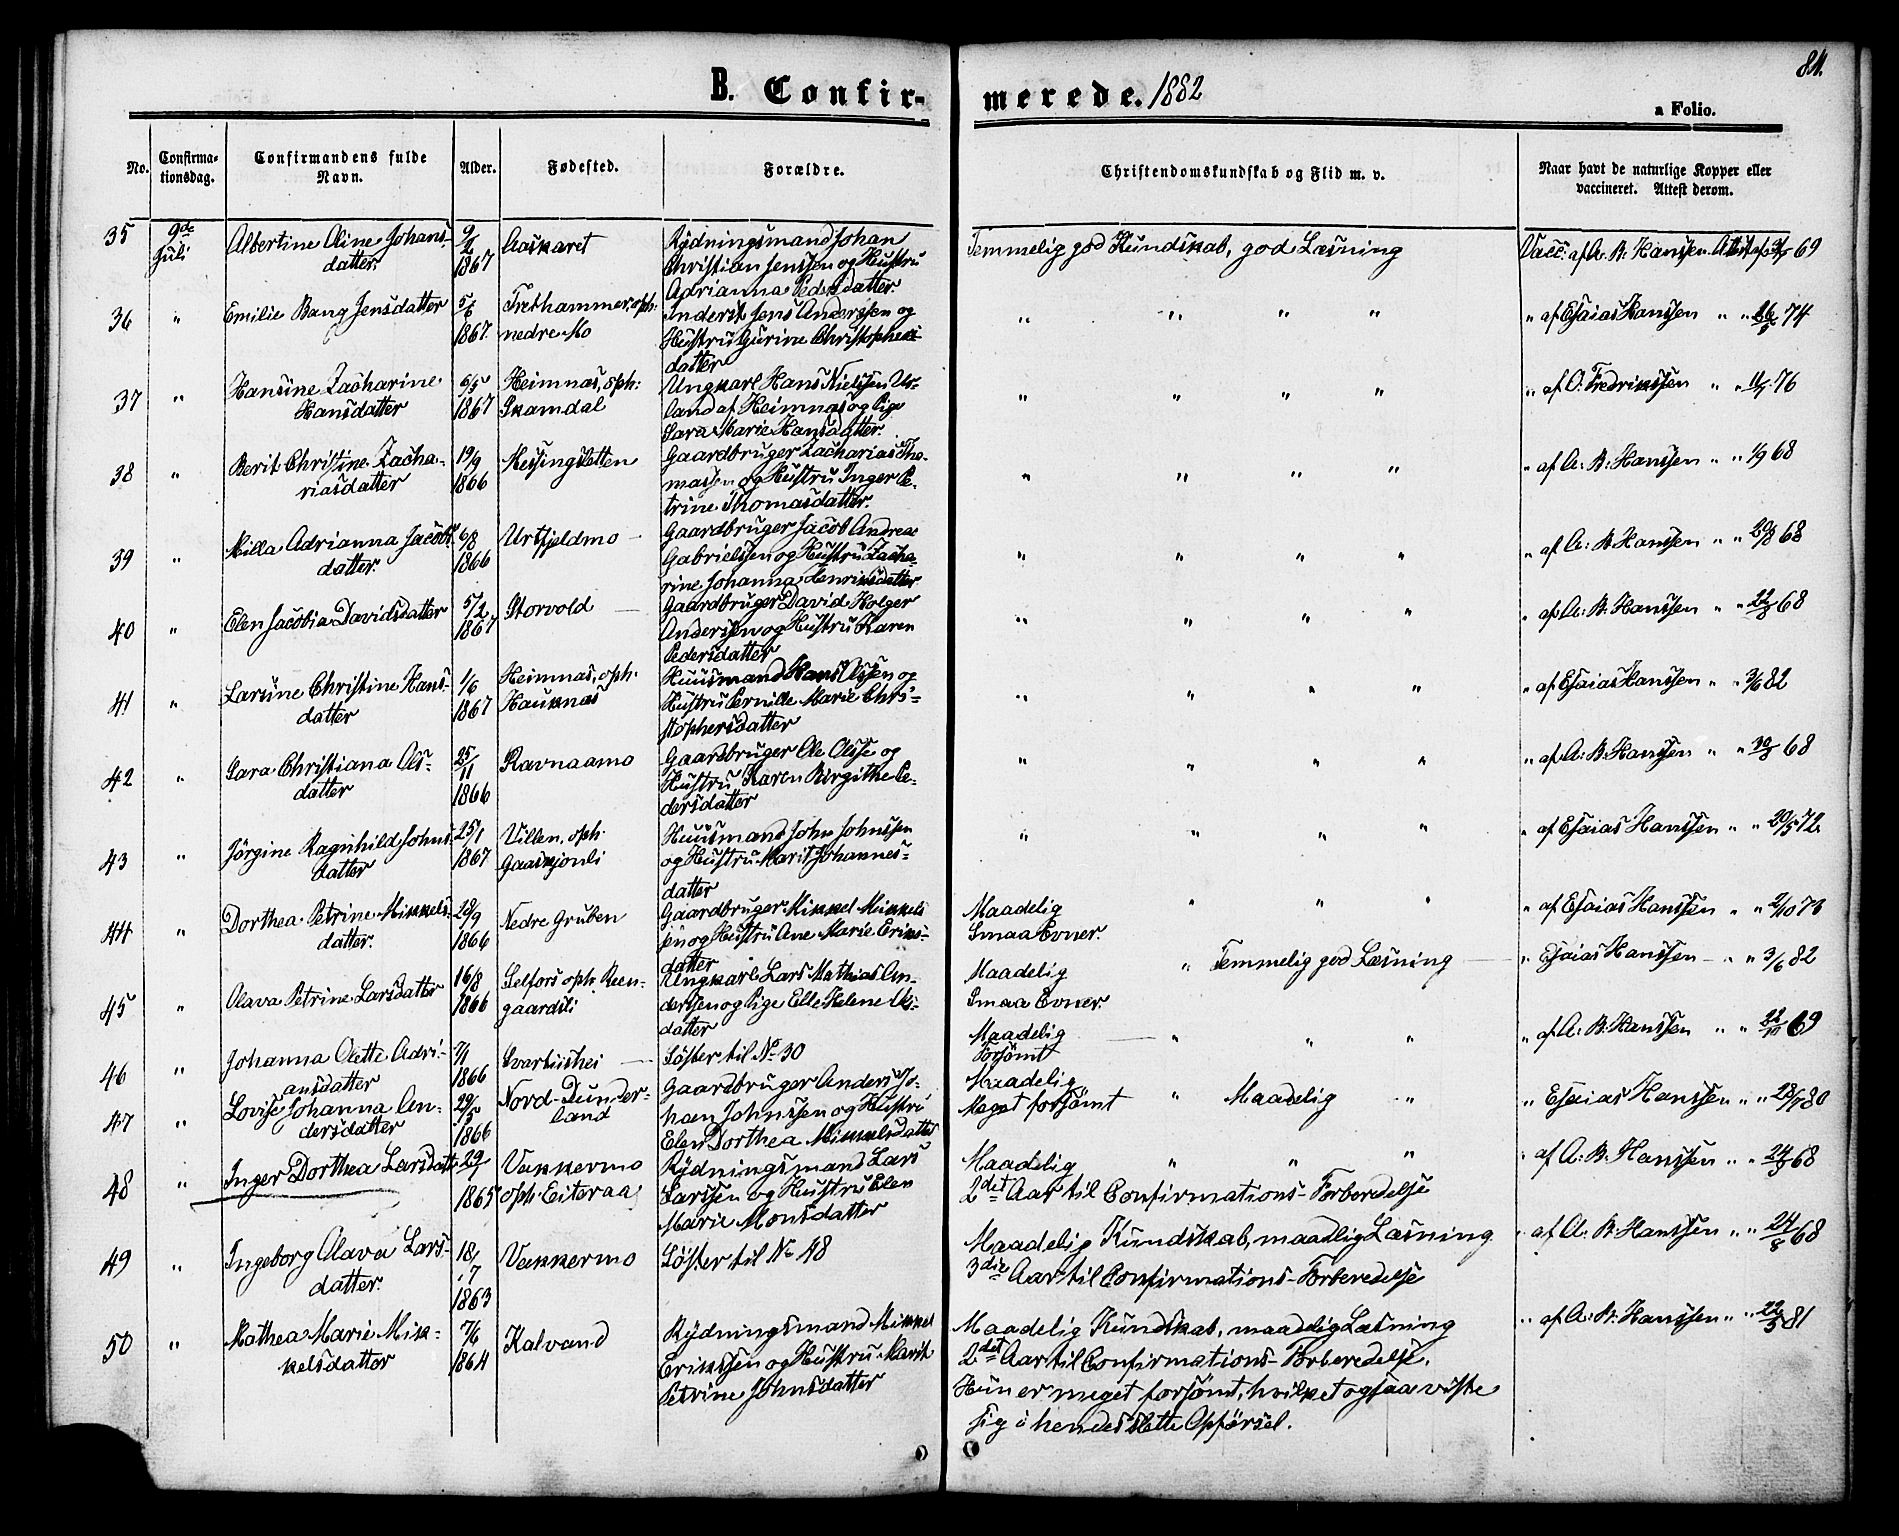 B. Confirmerede. 1882
81.
a Folio.
No. Confirmationsdag. Confirmandens fulde Navn. Alder. Fødested. Forældre. Christendomskundskab og Flid m. v. Naar havt de naturlige Kopper eller vaccineret. Attest derom.
35 9de Juli Albertine Oline Johans-
datter. 9/2 1867 Aaskaret Rydningsmand Johan
Christian Jenssen og Hustru
Adrianna Pedersdatter.
Temmelig god Kundskab, god Læsning
Vacc: af A. B. Hanssen Attest af 69
36 " Emilie Bang Jensdatter 5/6 1867. Frethammer, oph:
nedre Mo
Inderst Jens Anderssen og
Hustru Gurine Christophers-
datter
" " " "
" af Esaias Hanssen " " 74
37 " Hansine Zacharine
Hansdatter 6/5 1867 Heimnæs, oph:
Skamdal
Ungkarl Hans Nielssen Ur-
land af Heimnæs og Pige
Sara Marie Hansdatter.
" " " "
" af O: Fredrikssen " " 76
38 " Berit Christine Zacha-
riasdatter 19/9 1866 Messingsletten
Gaardbruger Zacharias Tho-
massen og Hustru Inger Pe-
trine Thomasdatter.
" " " "
" af A: B: Hanssen " " 1/9 68
39 " Milla Adrianna Jacobs-
datter. 6/8 1866 Urtfjeldmo
Gaardbruger Jacob Andreas
Gabrielssen og Hustru Zacha-
rine Johanna Henriksdatter
" " " "
" af A: B. Hanssen " " 20/8 68
40 " Elen Jacobia Davidsdatter 5/2 1867 Storvold
Gaardbruger David Holger
Anderssen og Hustru Karen
Pedersdatter
" " " "
" af A: B: Hanssen " " 22/8 68
41 " Larsine Christine Hans-
datter 1/6 1867 Heimnæs, oph.
Hauknæs
Huusmand Hans Olssen og
Hustru Pernille Marie Chri-
stophersdatter
" " " "
" af Esaias Hanssen " " 3/6 82
42 " Sara Christiana Ols-
datter 25/11 1866 Ravnaamo
Gaardbruger Ole Olsse og
Hustru Karen Birgithe Pe-
dersdatter
" " " "
" af A: B: Hanssen " " 30/8 68
43 " Jörgine Ragnhild Johns-
datter 25/1 1867 Villen, oph.
Gaaskjonli
Huusmand John Johnssen
og Hustru Marit Johannes-
datter
" " " "
" af Esaias Hanssen " " 20/5 72
44 " Dorthea Petrine Mikkels-
datter. 28/9 1866 Nedre Gruben
Gaardbruger Mikkel Mikkels
sen og Hustru Ane Marie Eriks-
datter
Maadelig " " "
Smaa Evner.
" af Esaias Hanssen " " 2/10 73
45 " Olava Petrine Larsdatter 16/8 1866 Selfors oph. Reen-
gaardsli
Ungkarl Lars Mathias An-
derssen og Pige Elle Helene Ols-
datter
Maadelig " Temmelig god Læsning
Smaa Evner.
" Esaias Hanssen " " 3/6 82
46 " Johanna Olette Adri-
ansdatter 7/1 1866 Svartishei
Söster til No 30
Maadelig " " "
Forsömt
" af A: B: Hanssen " " 69
47 " Lovise Johanna An-
dersdatter 29/5 1866 Nord-Dunder-
land
Gaardbruger Anders Jo-
han Johnssen og Hustru
Elen Dorthea Mikkelsdatter
Maadelig
Meget forsömt " Maadelig "
" Esaias Hanssen " " 80
48 " Inger Dorthea Larsdatt. 29/ 1865 Vakkermo
oph. Eiteraa
Rydningsmand Lars
Larssen og Hustru Elen
Marie Monsdatter
Maadelig " " "
2det Aar til Confirmations-Forberedelse
" af A: B: Hanssen " " 24/8 68
49 " Ingeborg Olava Lars-
datter. 18/7 1863 Vakkermo
Söster til No 48
Maadelig Kundskab, maadlig Læsning
3die Aar til Confirmations-Forberedelse
" af A: B: Hanssen " " 24/8 68
50 " Mathea Marie Mik-
kelsdatter 7/6 1864 Kalvand
Rydningsmand Mikkel
Erikssen og Hustru Marit
Petrine Johnsdatter
Maadelig Kundskab, maadelig Læsning
2det Aar til Confirmations-Forberedelse.
Hun er meget forsömt, hvilket ogsaa viste
sig i hendes slette Opförsel.
" af A: B: Hanssen " " 22/5 81